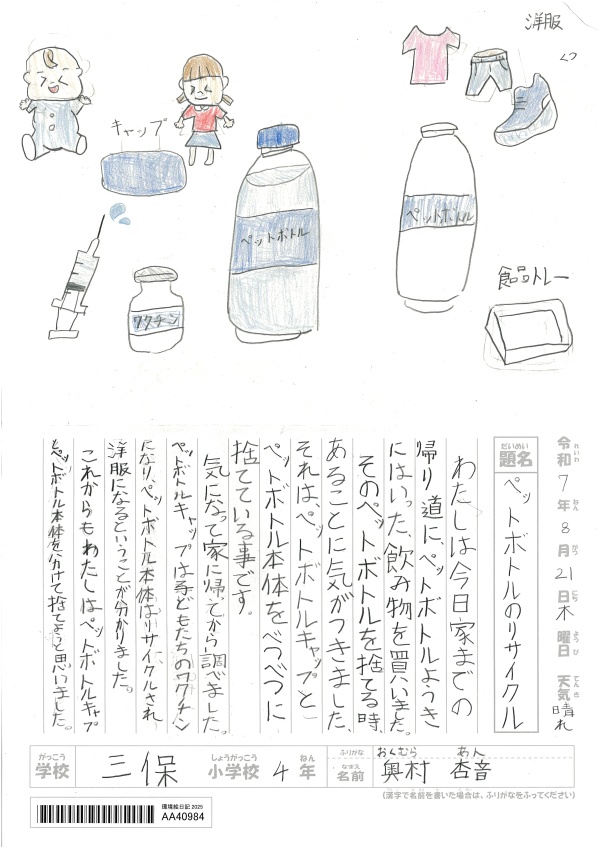 洋服
くつ
キャップ
ペットボトル
ペットボトル
ワクチン
食品トレー
令和7年8月21日木曜日 天気晴れ
れいわ ねん がつ にち ようび てんき
だいめい
題名
ペットボトルのリサイクル
わたしは今日家までの
帰り道に、ペットボトルようき
にはいった、飲み物を買いました。
そのペットボトルを捨てる時、
あることに気がつきました、
それはペットボトルキャップと
ペットボトル本体をべつべつに
捨てている事です。
気になって家に帰ってから調べました。
ペットボトルキャップは子どもたちのワクチン
になり、ペットボトル本体はリサイクルされ
洋服になるということが分かりました。
これからもわたしはペットボトルキャップ
とペットボトル本体を分けて捨てようと思いました。
がっこう
学校
三保
しょうがっこう
小学校
4
ねん
年
ふりがな
おくむら あん
なまえ
名前
奥村 杏音
(漢字で名前を書いた場合は、ふりがなをふってください)
環境絵日記 2025
AA40984